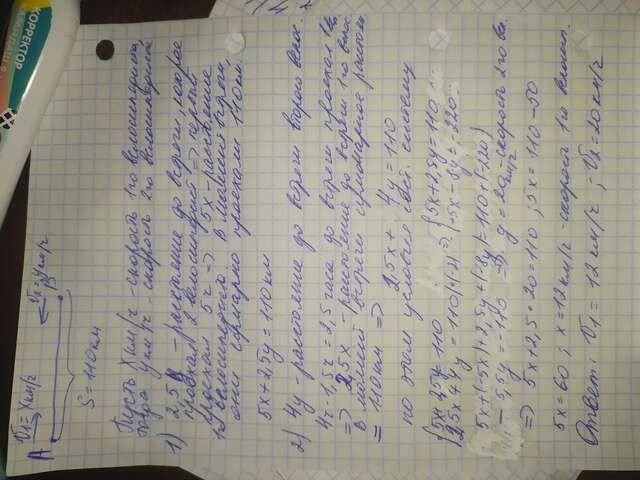 КОРРЕКТОР
V₁ = x км/ч
V₂ = y км/ч
A
B
S = 110 км
Пусть x км/ч - скорость 1го велосипедиста,
тогда y км/ч - скорость 2го велосипедиста.
1) 2,5y - расстояние до встречи которое
проехал 2 велосипедист => первый
проехал 5ч => 5x - расстояние
1го велосипедиста. В момент встречи,
они суммарно проехали 110 км.
5x + 2,5y = 110 км
2) 4y - расстояние до встречи второго вело.
4ч - 1,5ч = 2,5 часа до встречи проехал 1й
=> 2,5x - расстояние до встречи 1го вело.
В момент встречи суммарное расстоян.
= 110 км => 2,5x + 4y = 110
по этим условиям сост. систему
{5x + 2,5y = 110
{2,5x + 4y = 110 |·(-2) => {5x + 2,5y = 110
{-5x - 8y = -220
5x + (-5x) + 2,5y + (-8y) = 110 + (-220)
-5,5y = -110 => y = 20 км/ч - скорость 2го ве.
=> 5x + 2,5 · 20 = 110 ; 5x = 110 - 50
5x = 60 ; x = 12 км/ч - скорость 1го велос.
Ответ: V₁ = 12 км/ч ; V₂ = 20 км/ч